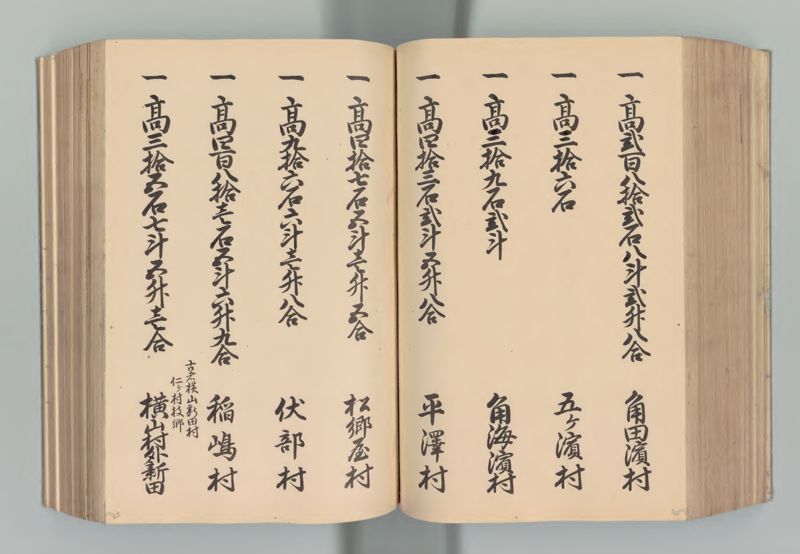 一 高弐百八拾弐石八斗弐升八合 角田濱村
一 高三拾六石 五ケ濱村
一 高三拾九石弐斗 角海濱村
一 高四拾三石弐斗五升八合 平澤村
一 高四拾七石五斗壱升五合 松郷屋村
一 高九拾六石六斗壱升八合 伏部村
一 高四百八拾壱石五斗六升九合 稲嶋村
古者横山新田村
仁ケ村枝郷
一 高三拾五石七斗五升壱合 横山村外新田